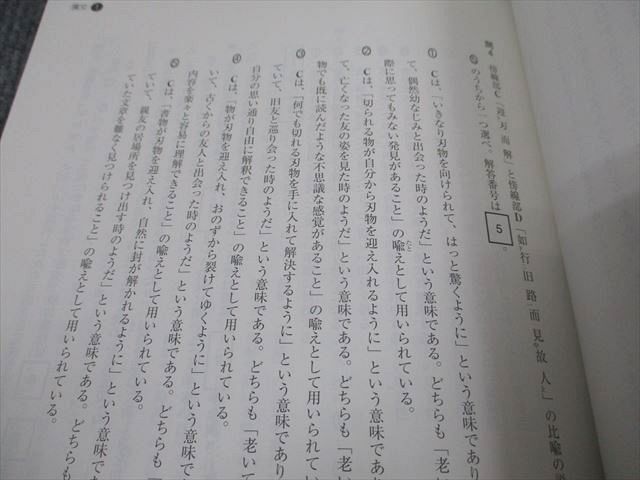 漢文 1
問4 傍線部C「迎レ刃而解」と傍線部D「如下行二旧路一而見中故人上」の比喩の
⑤のうちから一つ選べ。解答番号は 5 。
① Cは、「いきなり刃物を向けられて、はっと驚くように」という意味であ
て、偶然幼なじみと出会った時のようだ」という意味である。どちらも「老い
際に思ってもみない発見があること」の喩えとして用いられている。
② Cは、「切られる物が自分から刃物を迎え入れるように」という意味であ
て、亡くなった友の姿を見た時のようだ」という意味である。どちらも「老い
物でも既に読んだような不思議な感覚があること」の喩えとして用いられてい
③ Cは、「何でも切れる刃物を手に入れて解決するように」という意味であり
ていて、旧友と巡り会った時のようだ」という意味である。どちらも「老いて
自分の思い通り自由に解釈できること」の喩えとして用いられている。
④ Cは、「物が刃物を迎え入れ、おのずから裂けてゆくように」という意味で
いて、古くからの友人と出会った時のようだ」という意味である。どちらも
内容を楽々と容易に理解できること」の喩えとして用いられている。
⑤ Cは、「書物が刃物を迎え入れ、自然に封が解かれるように」という意味で
ていて、親友の居場所を見つけ出す時のようだ」という意味である。どちらも
ていた文章を難なく見つけられること」の喩えとして用いられている。